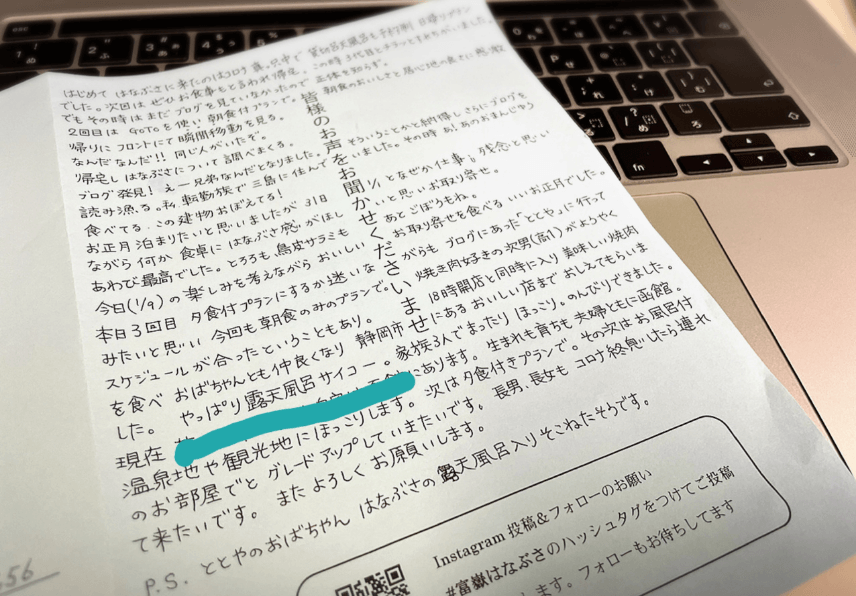 はじめて はなぶさに来たのはコロナ真っ只中で 貸切露天風呂も予約制 日帰りプラン
でした。次回は ぜひお食事もと言われ帰宅。この時 3代目とチラッとすれちがいました。
でも その時は まだ ブログを見ていなかったので 正体を知らず。
2回目は GoToを使い 朝食付プランで。 朝食のおいしさと居心地の良さに感激
帰りに フロントにて 瞬間移動を見る。
なんだ なんだ!! 同じ人がいたぞ。
帰宅し はなぶさについて 調べまくる。
ブログ発見! えー兄弟なんだとなりました。 そういうことかと納得し さらにブログを
読み漁る。私、転勤族で 三島に住んでいました。その時 あ!あのおまんじゅう
食べてる。この建物おぼえてる!
お正月 泊まりたいと思いましたが 31日 1/1となぜか仕事。残念と思い
ながら 何か 食卓に はなぶさ感がほしいと思いお取り寄せ。
あわび最高でした。とろろも、鳥皮サラミも あとごぼうもね。
今日(1/9)の 楽しみを考えながら おいしいお取り寄せを食べる いいお正月でした。
本日3回目 夕食付プランにするか迷いながらも ブログにあった「ととや」に行って
みたいと思い 今回も朝食のみのプランで。焼き肉好きの次男(高1)がようやく
スケジュールが合ったということもあり。18時開店と同時に入り 美味しい焼肉
を食べ おばちゃんとも仲良くなり 静岡市にあるおいしい店まで おしえてもらいま
した。 やっぱり露天風呂サイコー。家族3人でまったり ほっこり。のんびりできました。
現在 にあります。生まれも育ちも 夫婦ともに函館。
温泉地や観光地にほっこりします。次は夕食付きプランで。その次は お風呂付
のお部屋でと グレードアップしていきたいです。長男、長女も コロナ終息したら連れ
て来たいです。またよろしくお願いします。
P.S. ととやのおばちゃん はなぶさの露天風呂入りそこねたそうです。
皆様のお声をお聞かせくださいませ
Instagram 投稿&フォローのお願い
#富嶽はなぶさのハッシュタグをつけてご投稿
します。フォローもお待ちしてます
56
fn